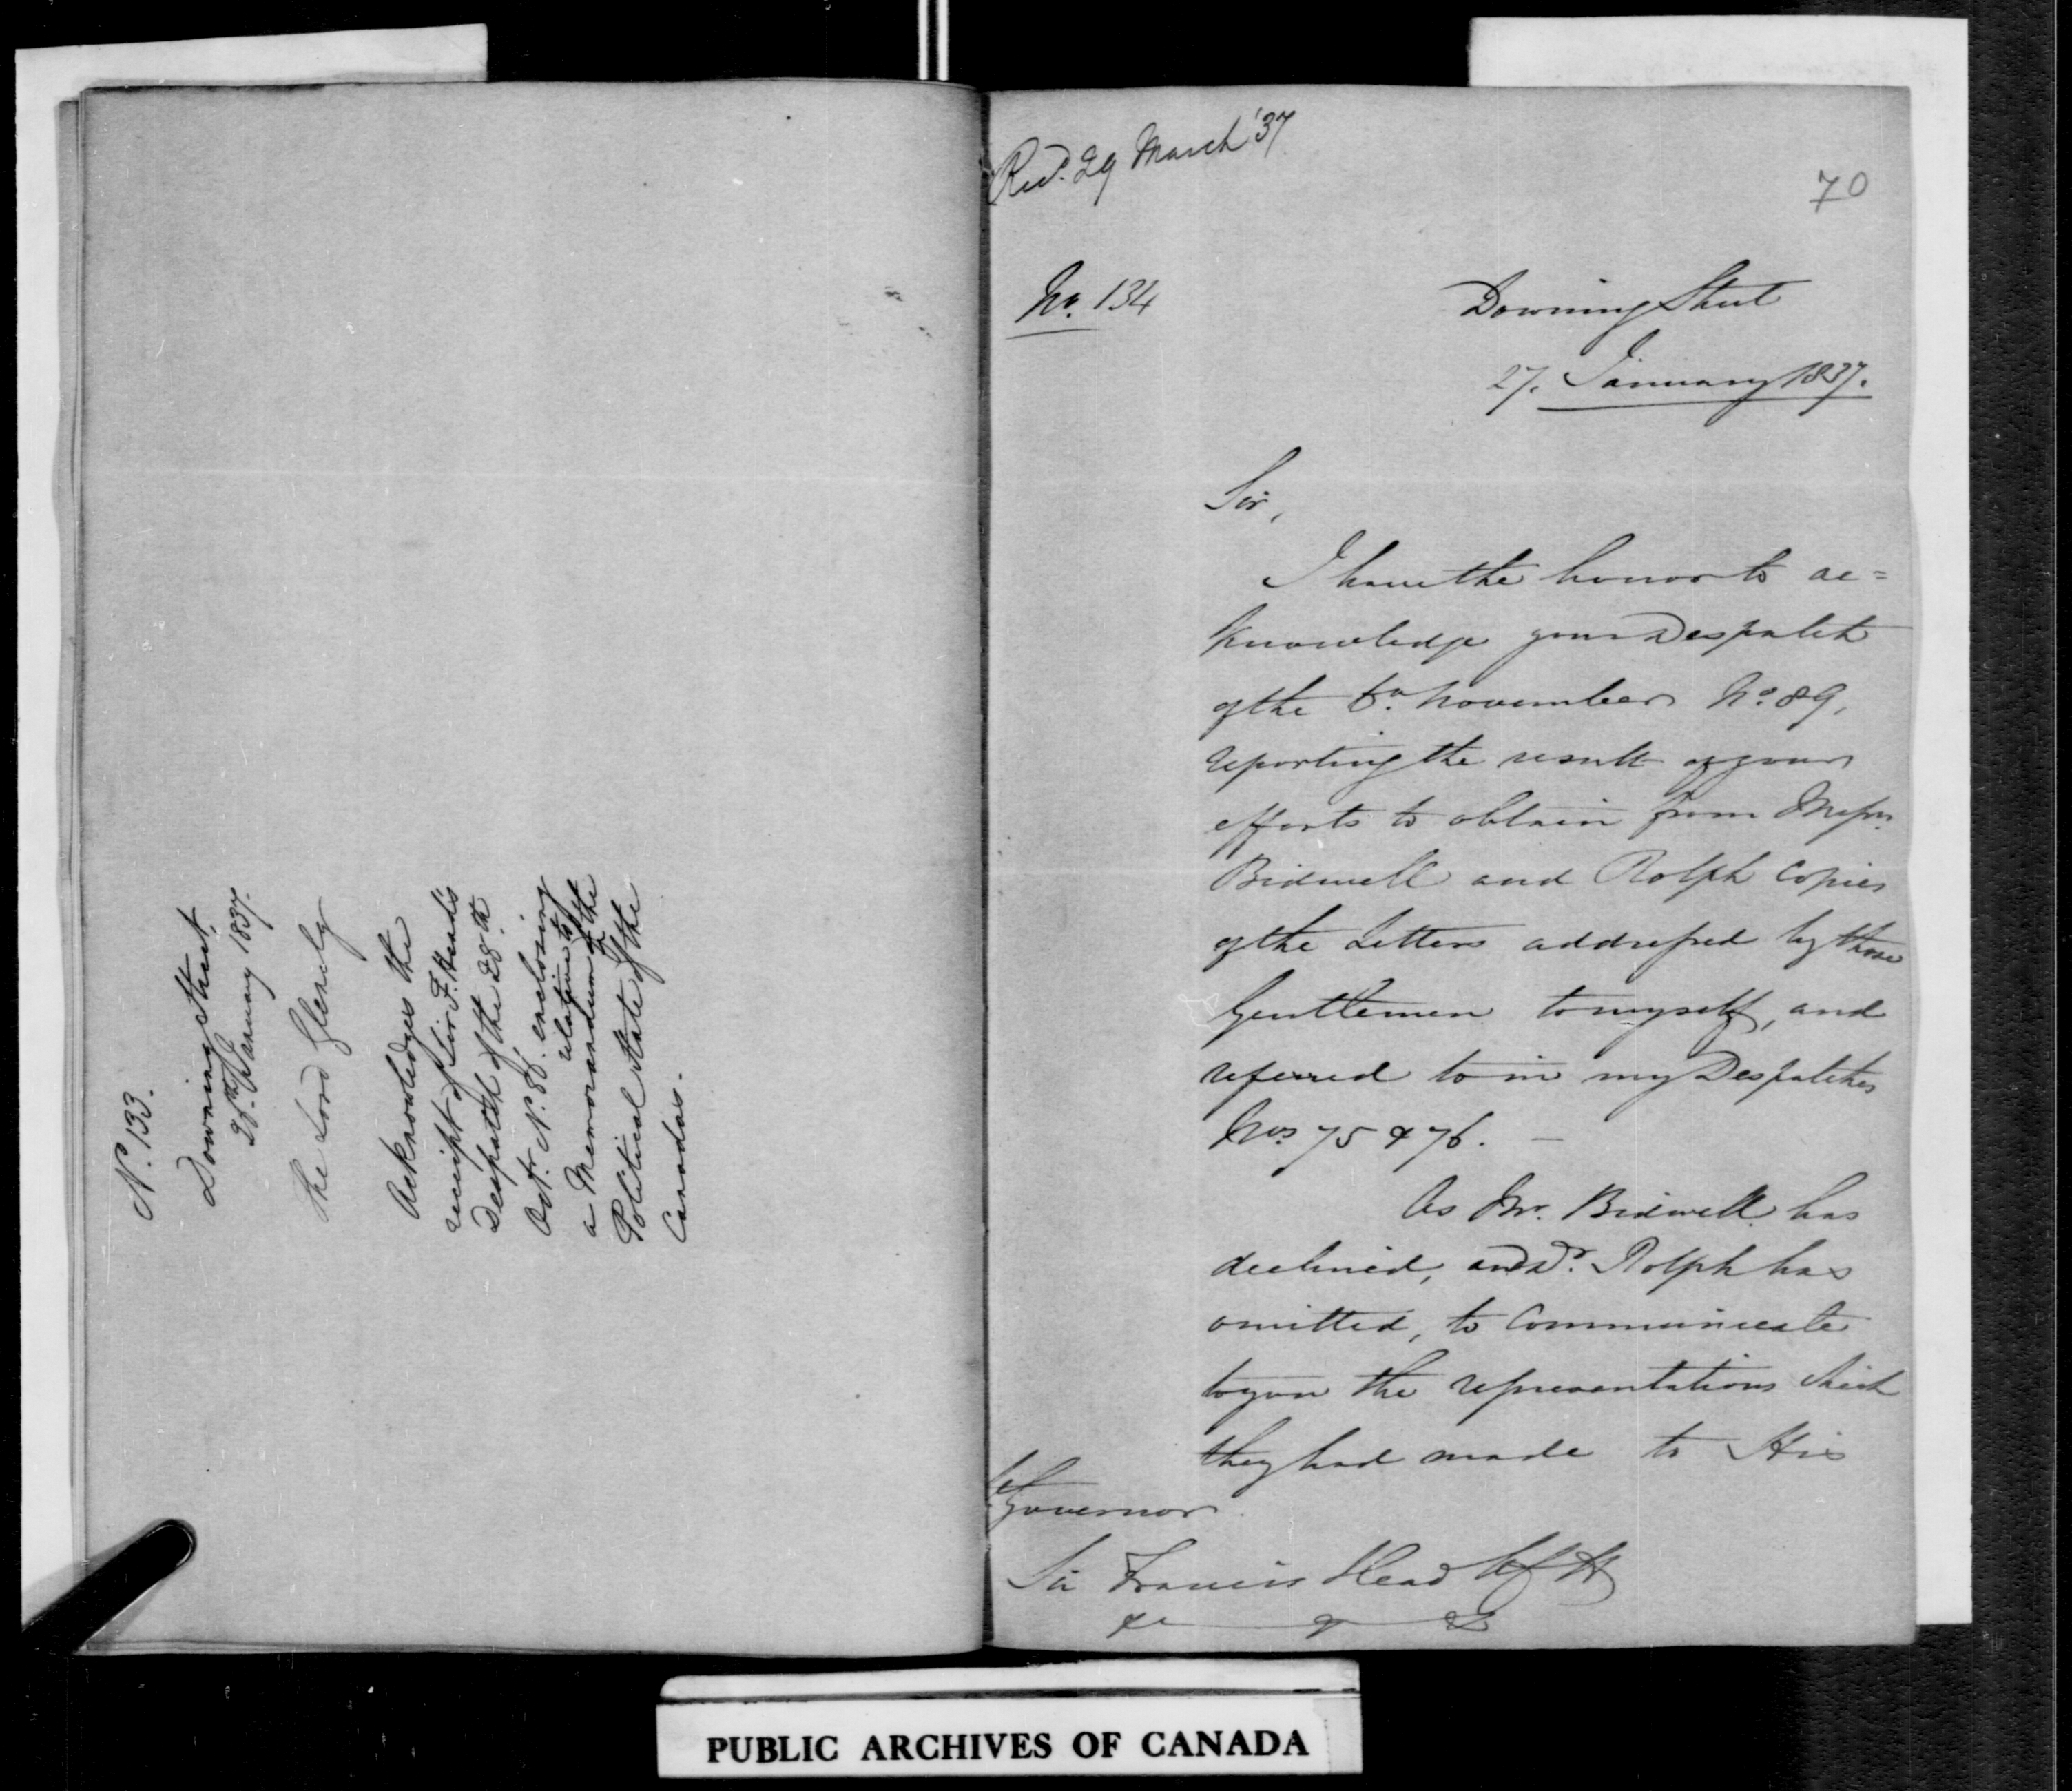 N. 133.
Downing Street,
26th January 1837.
The Lord Glenelg
Acknowledges the
receipt of Sir F. Head's
Despatch of the 28th
Octr. N. 88. enclosing
a Memorandum relative to the
Political State of the
Canadas.
Recd. 29 March '37
70
No. 134
Downing Street
27. January 1837.
Sir,
I have the honor to ac=
knowledge your Despatch
of the November No. 89,
reporting the result of your
efforts to obtain from Messrs.
Bidwell and Rolph Copies
of the Letters addressed by those
Gentlemen to myself, and
referred to in my Despatches
Nos 75 & 76. —
As Mr. Bidwell has
declined, and Dr. Rolph has
omitted, to Communicate
to you the representations which
they had made to His
Governor
Sir Francis Head
&c &c &c
PUBLIC ARCHIVES OF CANADA